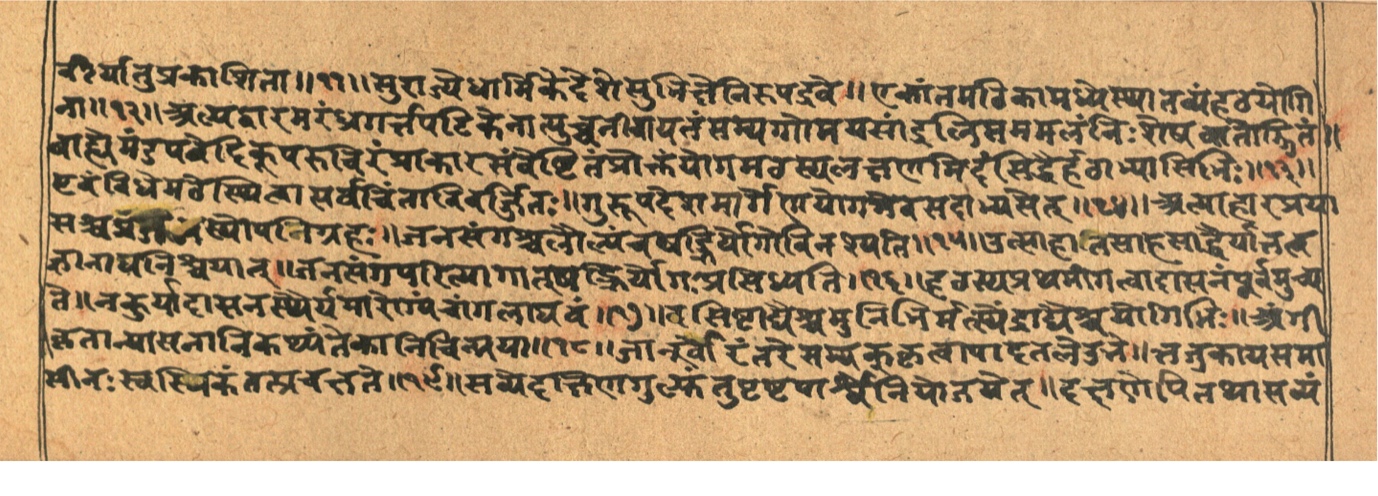 वीर्यातुप्रकाशिता॥११॥सुराज्येधार्मिकेदेशेसुभिक्षेनिरुपद्रवे॥एकांतमठिकामध्येस्थातव्यंहठयोगि
ना॥१२॥अल्पद्वारमरंध्रगर्त्तपटिकेनात्युच्चनीचायतंसम्यग्गोमयसांद्रलिप्तममलंनिःशेषबाधोज्झितं॥
बाह्येमंडपवेदिकूपरुचिरंप्राकारसंवेष्टितंप्रोक्तंयोगमठस्यलक्षणमिदंसिद्धैर्हठाभ्यासिभिः॥१३॥
एवंविधेमठेस्थित्वासर्वचिंताविवर्ज्जितः॥गुरूपदेशमार्गेणयोगमेवसदाभ्यसेत्॥१४॥अत्याहारप्रया
सश्चप्र स्योपनिग्रहः॥जनसंगश्चलौल्यंचषड्भिर्योगोविनश्यति॥१५॥उत्साहात्साहसाद्धैर्यात्तत्व
ज्ञानाच्चनिश्चयात्॥जनसंगपरित्यागात्षड्भिर्योगःप्रसिध्यति।१६॥हठस्यप्रथमांगत्वादासनंपूर्वमुच्य
ते॥तत्कुर्यादासनस्थैर्यमारोग्यंचांगलाघवं॥१७॥वसिष्टाद्यैश्चमुनिभिर्मत्स्येंद्राद्यैश्चयोगिभिः॥अंगी
कृतान्यासनानिकथ्यंतेकानिचिन्मया॥१८॥जानूर्वोरंतरेसम्यक्कृत्वापादतलेउभे॥ऋजुकायसमा
सीनःस्वस्तिकंतत्प्रचक्षते॥१९॥सव्येदक्षिणगुल्फंतुपृष्टपार्श्वेनियोजयेत्॥दक्षिणेपितथासव्यं